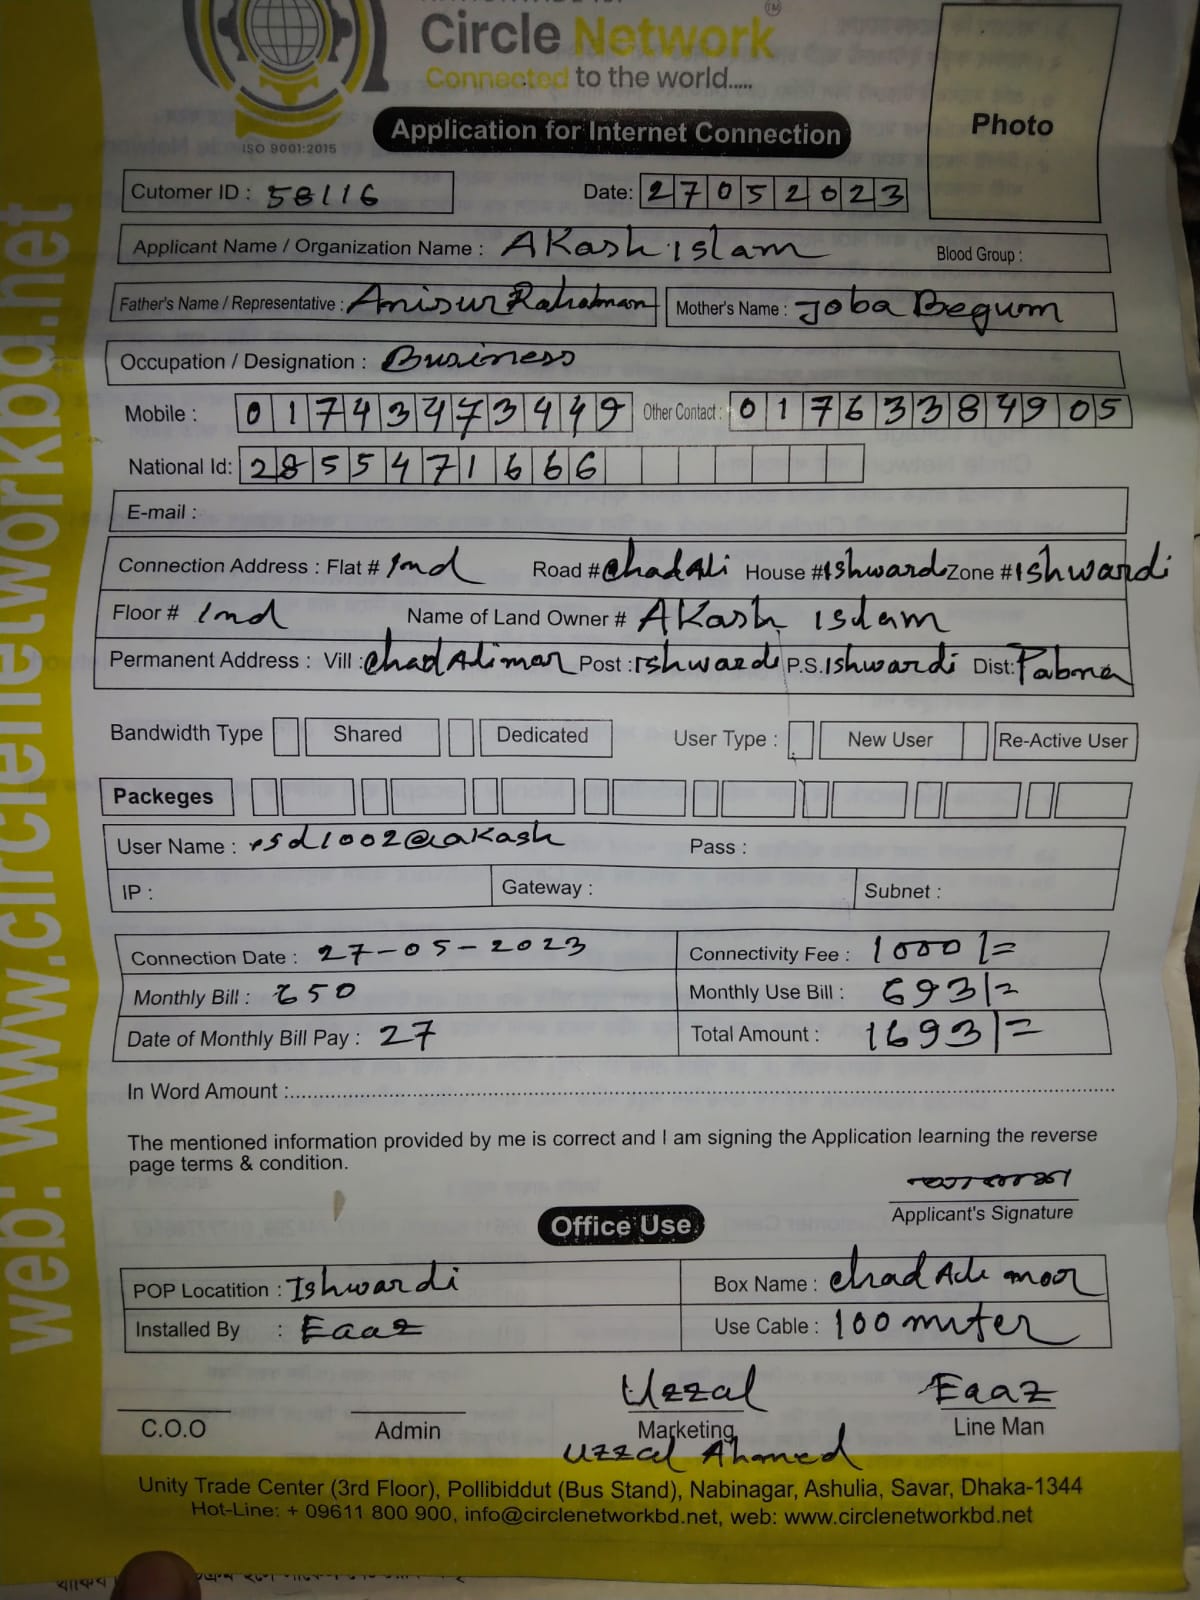 Circle Network
TM
Connected to the world.....
ISO 9001:2015
Application for Internet Connection
Photo
Cutomer ID : 58116
Date: 27052023
Applicant Name / Organization Name : AKash islam Blood Group :
Father's Name / Representative : Anisur Rahaman Mother's Name : Joba Begum
Occupation / Designation : Business
Mobile : 01743473449 Other Contact : 01763384905
National Id: 2855471666
E-mail :
Connection Address : Flat # Ind Road # chadAli House # Ishwardi Zone # ishwardi
Floor # Ind Name of Land Owner # AKash islam
Permanent Address : Vill : chadAlimor Post : ishwardi P.S. Ishwardi Dist: Pabna
Bandwidth Type Shared Dedicated User Type : New User Re-Active User
Packeges
User Name : sd1002@akash Pass :
IP : Gateway : Subnet :
Connection Date : 27-05-2023 Connectivity Fee : 1000/=
Monthly Bill : 650 Monthly Use Bill : 693/=
Date of Monthly Bill Pay : 27 Total Amount : 1693/=
In Word Amount :
The mentioned information provided by me is correct and I am signing the Application learning the reverse
page terms & condition.
Applicant's Signature
Office Use
POP Locatition : Ishwardi Box Name : chad Ali moor
Installed By : Eaaz Use Cable : 100 miter
Uzzal Eaaz
C.O.O Admin Marketing Line Man
Uzzal Ahmed
Unity Trade Center (3rd Floor), Pollibiddut (Bus Stand), Nabinagar, Ashulia, Savar, Dhaka-1344
Hot-Line: + 09611 800 900, info@circlenetworkbd.net, web: www.circlenetworkbd.net
web: www.circlenetworkbd.net